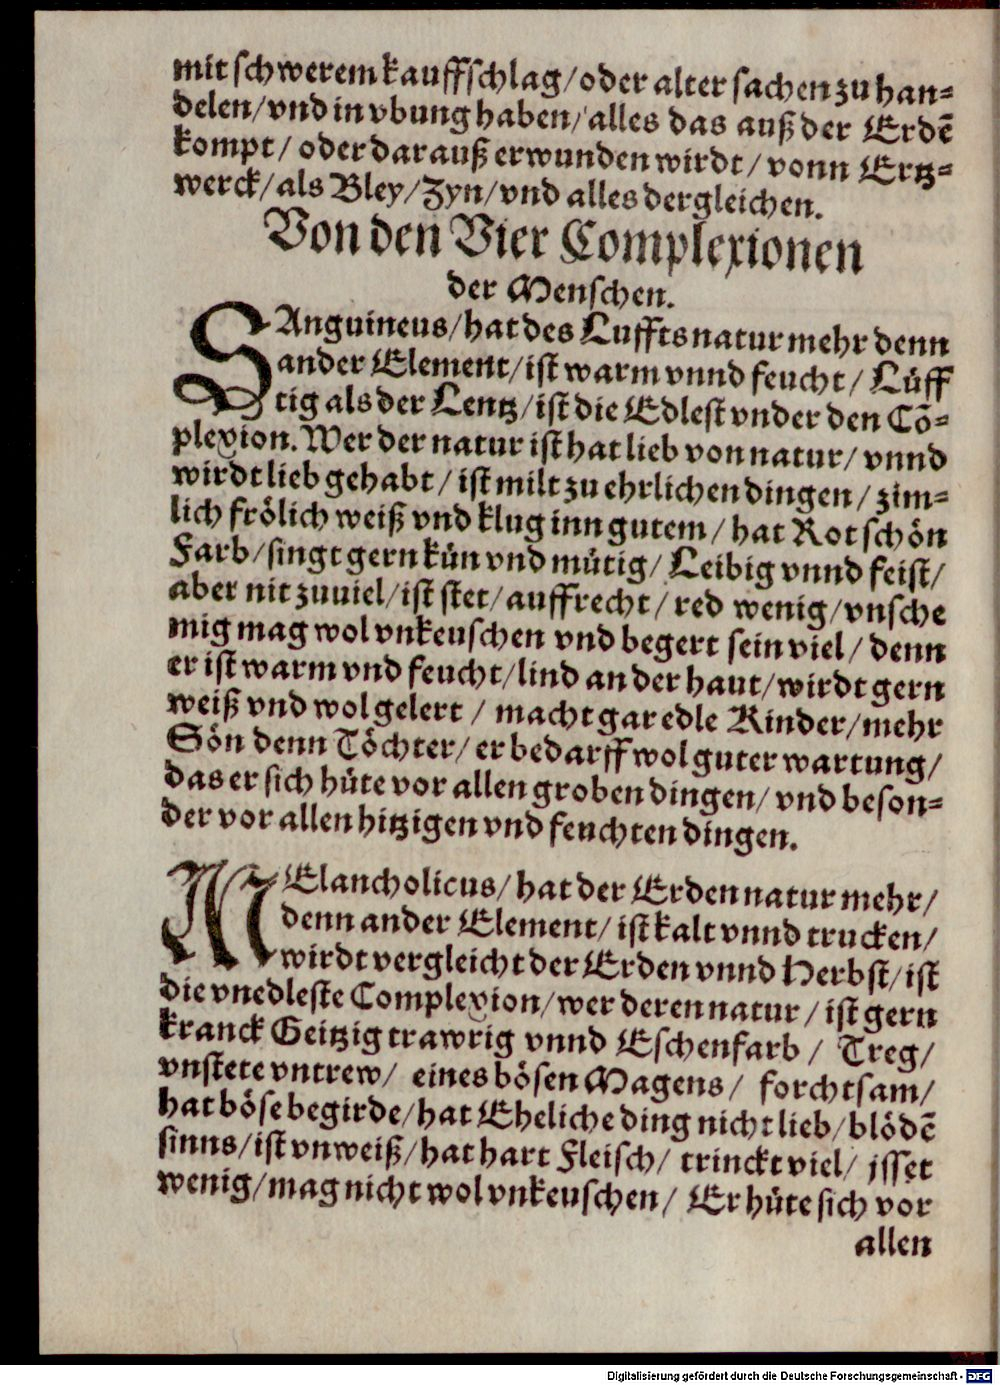 mit schwerem kauffschlag/oder alter sachen zu han⸗
delen/vnd in vbung haben/alles das auß der Erdẽ
kompt/ oder darauß erwunden wirdt/ vonn Ertz⸗
werck/als Bley/Zyn/vnd alles dergleichen.
Von den Vier Complexionen
der Menschen.
SAnguineus/hat des Luffts natur mehr denn
ander Element/ist warm vnnd feucht/ Lüff
tig als der Lentz/ist die Edlest vnder den Cõ⸗
plexion. Wer der natur ist hat lieb von natur/ vnnd
wirdt lieb gehabt/ ist milt zu ehrlichen dingen/ zim⸗
lich frölich weiß vnd klug inn gutem/ hat Rot schön
Farb/singt gern kün vnd mütig/ Leibig vnnd feist/
aber nit zuuiel/ist stet/auffrecht/ red wenig/vnsche
mig mag wol vnkeuschen vnd begert sein viel/ denn
er ist warm vnd feucht/lind an der haut/wirdt gern
weiß vnd wol gelert / macht gar edle Kinder/mehr
Sön denn Töchter/ er bedarff wol guter wartung/
das er sich hüte vor allen groben dingen/ vnd beson⸗
der vor allen hitzigen vnd feuchten dingen.
MElancholicus/ hat der Erden natur mehr/
denn ander Element/ ist kalt vnnd trucken/
wirdt vergleicht der Erden vnnd Herbst/ist
die vnedleste Complexion/wer deren natur/ ist gern
kranck Geitzig trawrig vnnd Eschenfarb / Treg/
vnstete vntrew/ eines bösen Magens/ forchtsam/
hat böse begirde/hat Eheliche ding nicht lieb/blödẽ
sinns/ist vnweiß/hat hart Fleisch/ trinckt viel/ jsset
wenig/mag nicht wol vnkeuschen/ Er hüte sich vor
allen
Digitalisierung gefördert durch die Deutsche Forschungsgemeinschaft - DFG